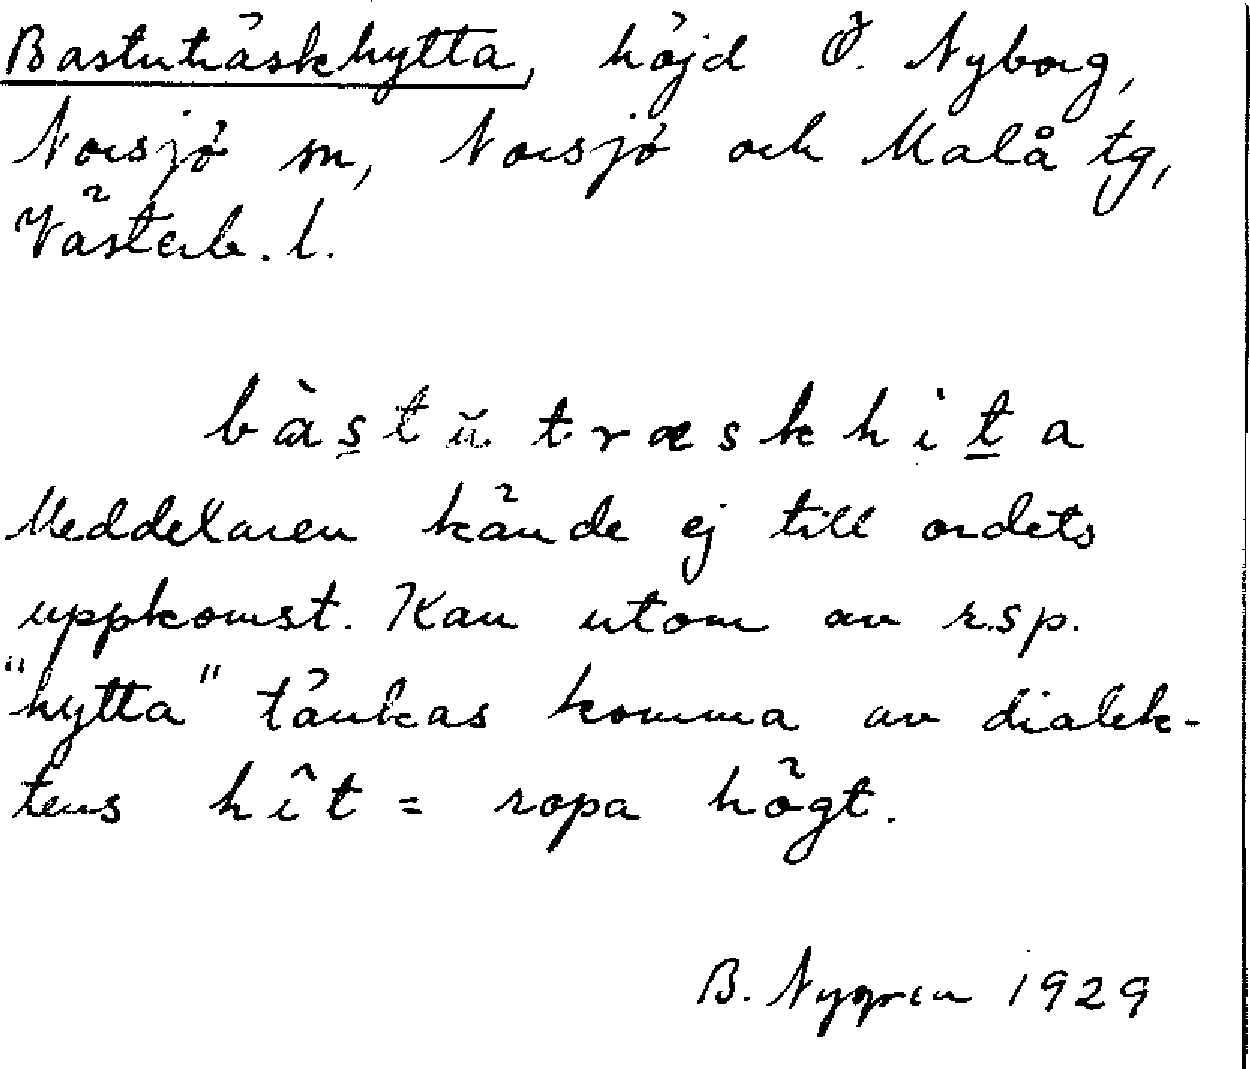 Bastuträskhytta, höjd Ö. Nyborg,
Norsjö sn, Norsjö och Malå tg,
Västerb. l.
bàs̱tŭtræskhit̲a
Meddelaren kände ej till ordets
uppkomst. Kan utom av r.sp.
"hytta" tänkas komma av dialek-
tens hît = ropa högt.
B. Nygren 1929